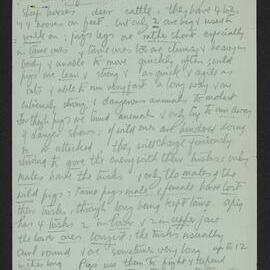 sheep horses deer cattle. They have 4 toes
& hooves on feet but only 2 are big & used to
walk on; pigs legs are rather short especially
in tame ones & tame ones too are clumsy & heavy in
body & unable to move quickly often wild
pigs are lean & strong & as quick & agile as
cats & able to run very fast a long way &
extremely strong & dangerous animals to molest
for though pigs are timid animals & will try to run away
if danger shows; if wild ones are wounded
or attacked they will charge furiously
striving to gore the enemy with their tusks; only
males have the tusks & only the males of the
wild pigs: tame pigs male & female have lost
their tusks through long being kept tame. A pig
has 4 tusks 2 in lower & 2 in upper jaw
the lower ones longest: the tusks usually
curl round & are sometimes very long up to 12
inches long. Pigs use them to fight & defend